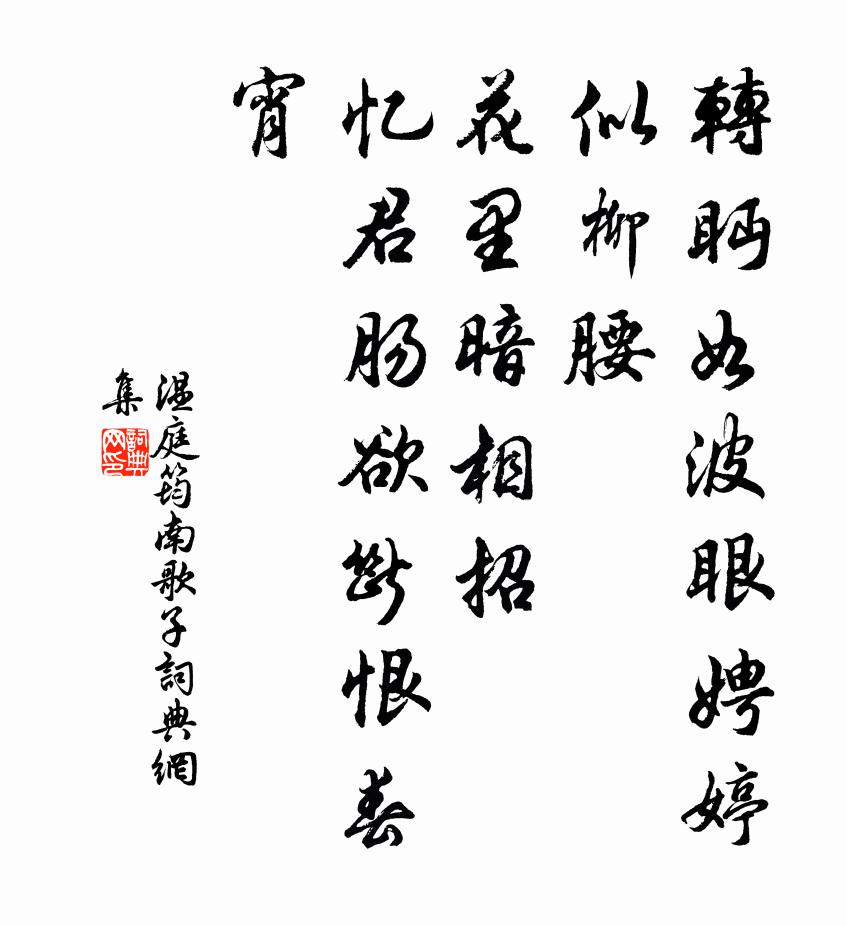 轉眄如波眼娉婷
似柳腰
花里暗相招
忆君肠欲斷恨春
宵
温庭筠南歌子詞典網
集
詞典
网印